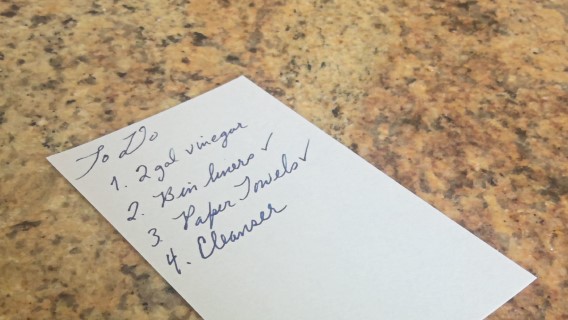 To Do
1. 2 gal vinegar
2. Bin liners ✓
3. Paper Towels ✓
4. Cleanser